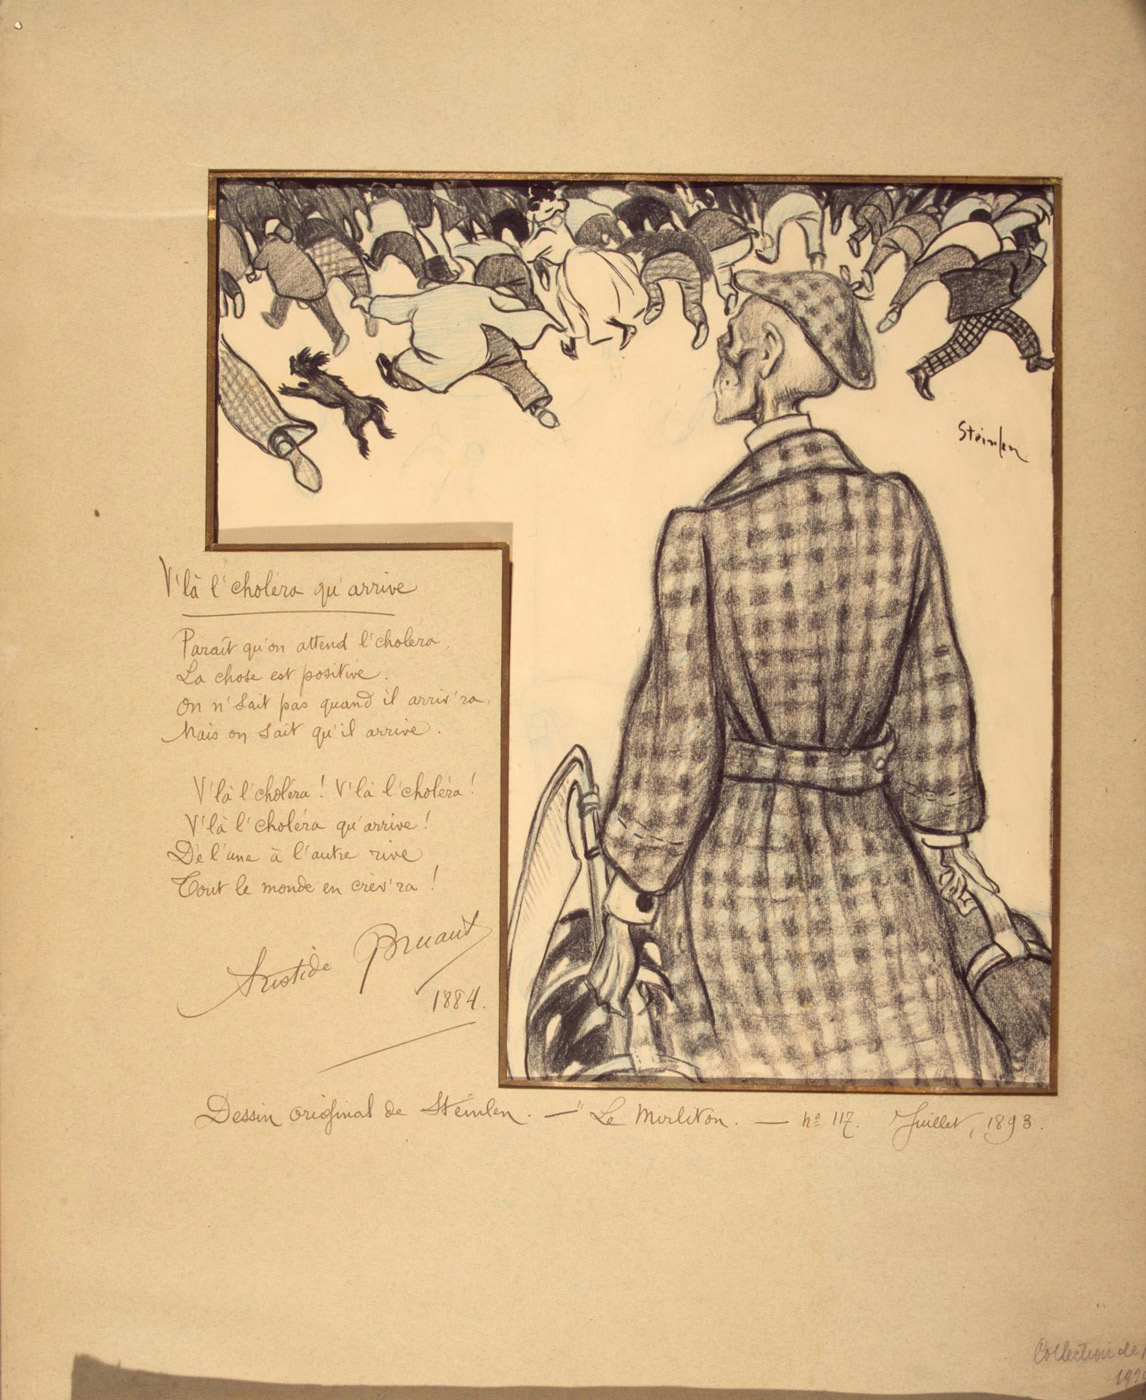 Steinlen
V'là l'choléra qu'arrive
Paraît qu'on attend l'choléra,
La chose est positive.
On n'sait pas quand il arriv'ra,
Mais on sait qu'il arrive.
V'là l'choléra ! V'là l'choléra !
V'là l'choléra qu'arrive !
De l'une à l'autre rive
Tout le monde en crèv'ra !
Aristide Bruant
1884.
Dessin original de Steinlen. — "Le Mirliton. — nº 117. Juillet, 1893.
Collection de